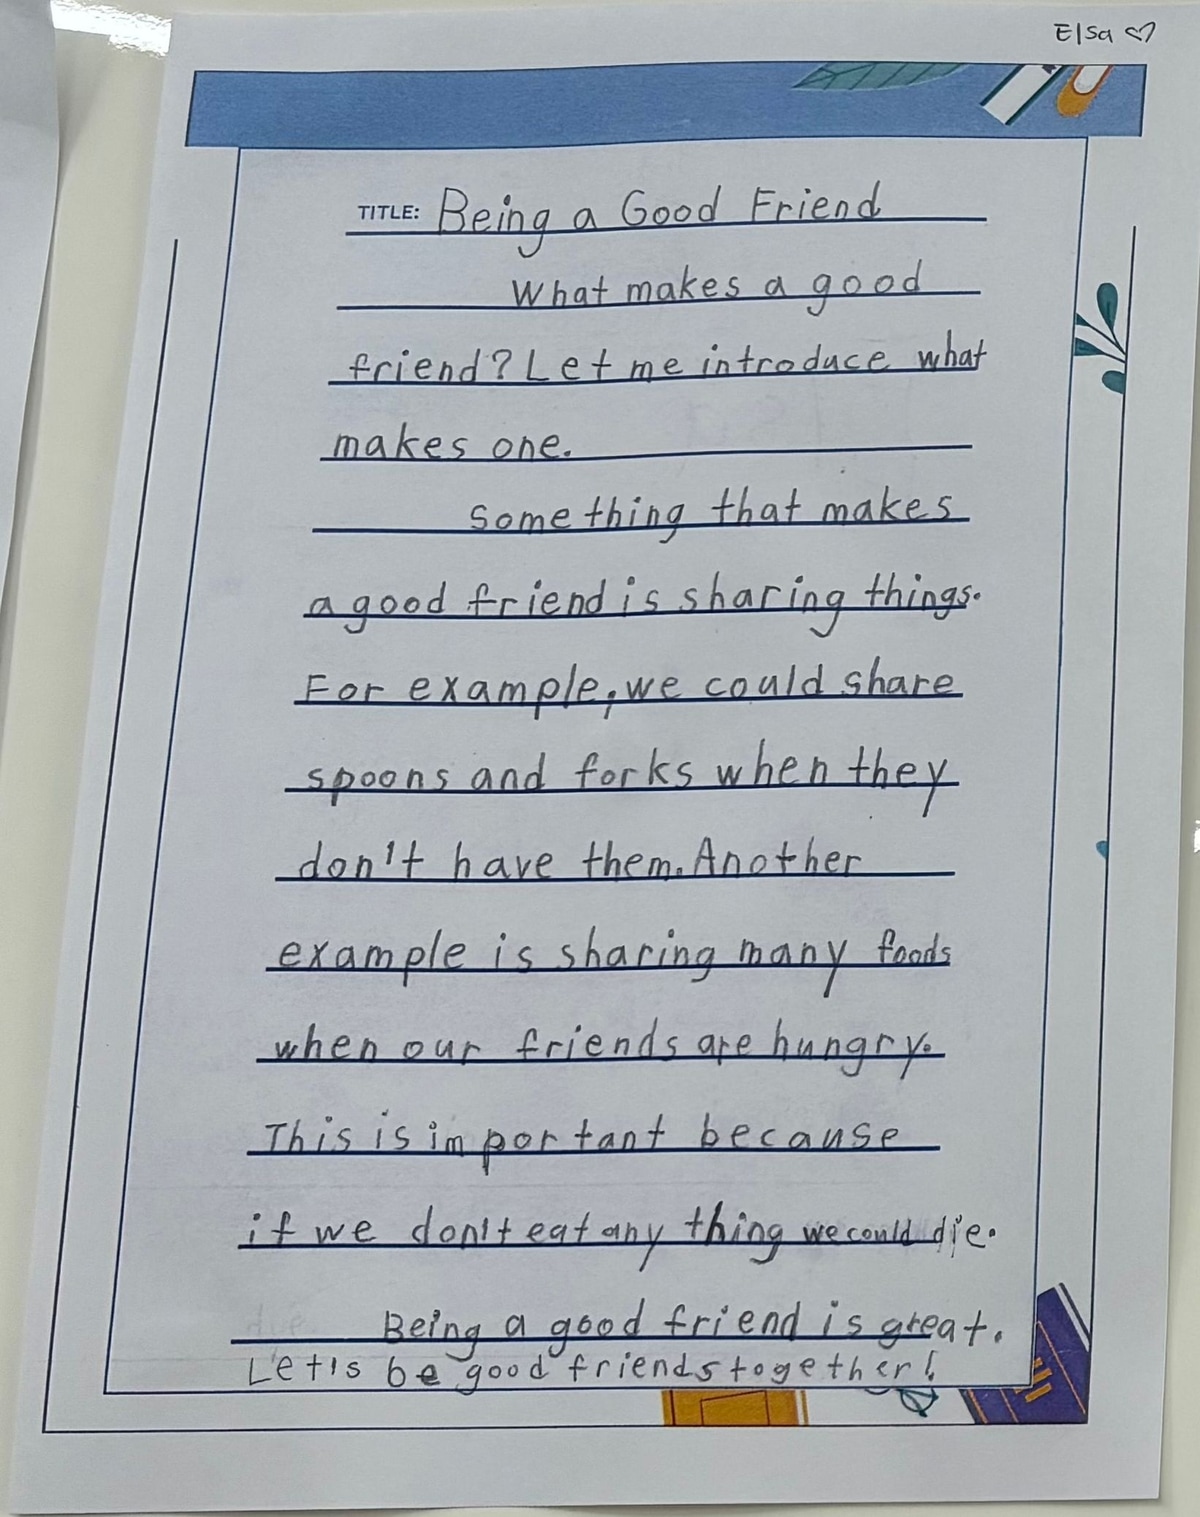 Elsa ♡
TITLE: Being a Good Friend
What makes a good
friend? Let me introduce what
makes one.
Something that makes
a good friend is sharing things.
For example, we could share
spoons and forks when they
don't have them. Another
example is sharing many foods
when our friends are hungry.
This is important because
if we don't eat any thing we could die.
Being a good friend is great.
Let's be good friends together!